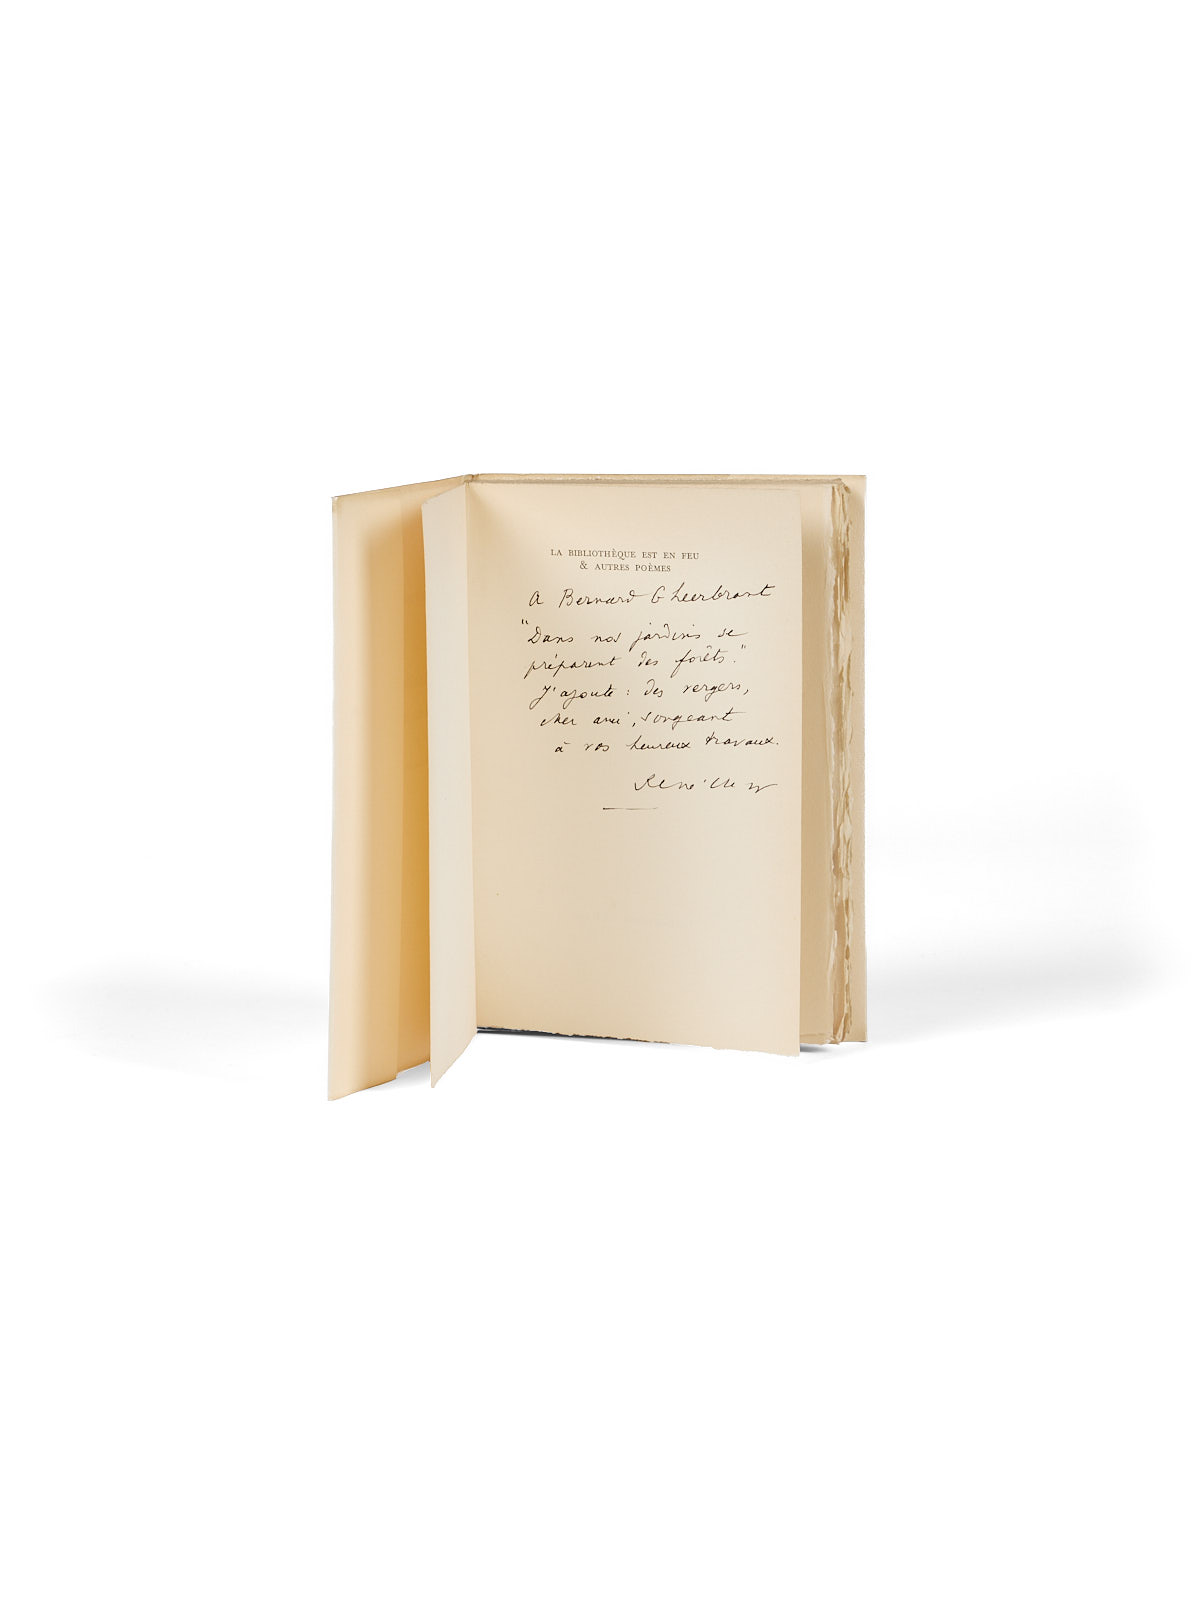 LA BIBLIOTHÈQUE EST EN FEU
& AUTRES POÈMES
A Bernard Gheerbrant
"Dans nos jardins se
préparent des forêts."
J'ajoute : des vergers,
cher ami, songeant
à vos heureux travaux.
René Char